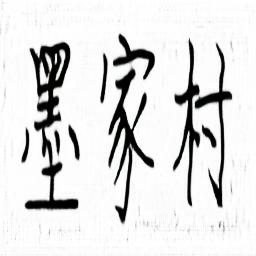 墨家村